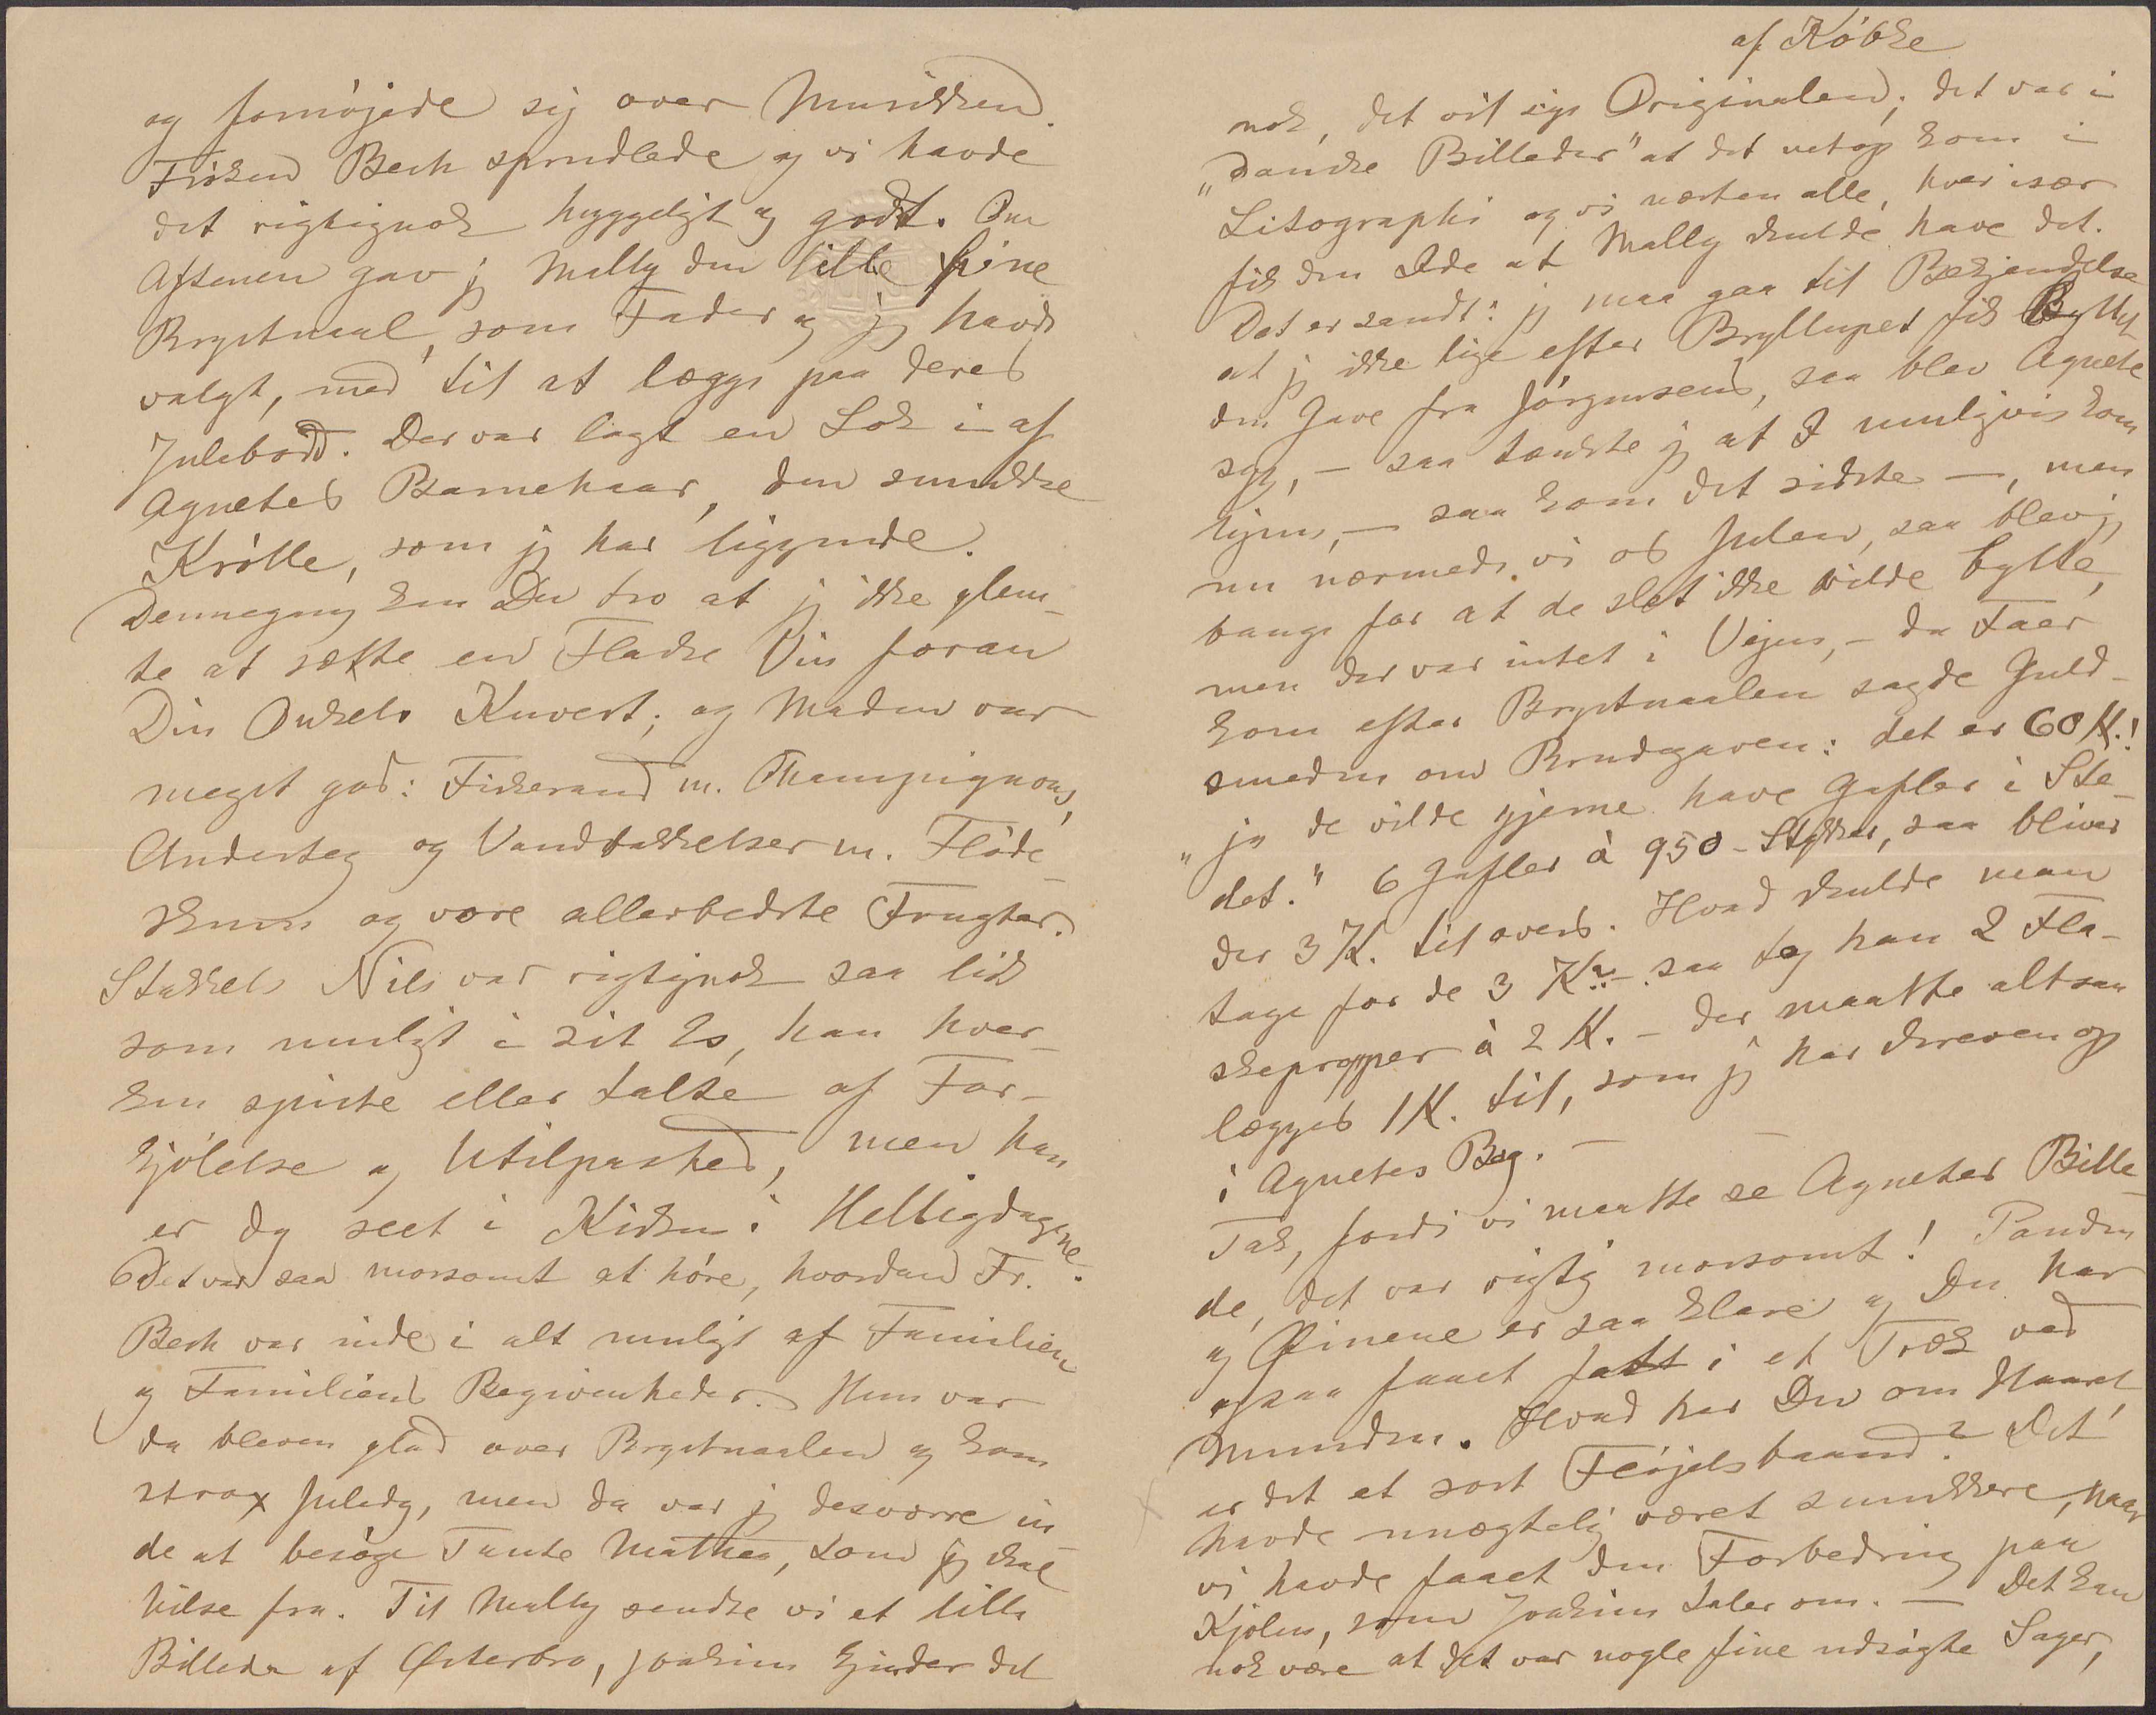 og fornöjede sig over Musikken.
Fröken Bech sprudlede og vi havde
det rigtignok hyggeligt og godt. Om
Aftenen gav jeg Mally den lille fine
Brystnaal, som Fader og jeg havde
valgt, med til at lægge paa deres
Julebord. Der var lagt en Lok i af
Agnetes Barnehaar, den smukke
Krölle, som jeg har liggende.
Dennegang kan Du tro at jeg ikke glem-
te at sætte en Flaske Vin foran
Din Onkels Kuvert; og Maden var
meget god: Fiskerand m. Champignons,
Andesteg og Vandbakkelser m. Flöde-
skum og vore allerbedste Frugter.
Stakkels Nils var rigtignok saa lidt
som muligt i sit Es, han hver-
ken spiste eller talte af For-
kjölelse og Utilpashed, men han
er dog seet i Kirken i Helligdagene.
Det var saa morsomt at höre, hvordan Fr.
Bech var inde i alt muligt af Familien
og Familiens Begivenheder. Hun var
da bleven glad over Brystnaalen og kom
strax Juledag, men da var jeg desværre in-
de at besöge Tante Mathea, som jeg skal
hilse fra. Til Mally sendte vi et lille
Billede af Østerbro, Joakim kjender det
af Köbke
nok, det vil sige Originalen; det var i
"Danske Billeder" at det netop kom i
Litographi og vi næsten alle, hver især
fik den Ide at Mally skulde have det.
Det er sandt: jeg maa gaa til Bekjendelse
at jeg ikke lige efter Bryllupet fik Byttet
den Gave fra Jörgensens, saa blev Agnete
syg, – saa tænkte jeg at I muligvis kom
hjem, – saa kom det sidste –, men
nu nærmede vi os Julen, saa blev jeg
bange for at de slet ikke vilde bytte,
men der var intet i Vejen, – da Faer
kom efter Brystnaalen sagde Guld-
smeden om Brudgaven: det er 60 K.!
"ja de vilde gjerne have Gafler i Ste-
det." 6 Gafler à 950 – Stykket, saa bliver
der 3 K. tilovers. Hvad skulde man
tage for de 3 Kr – saa tog han 2 Fla-
skepropper à 2 K. – der maatte altsaa
lægges 1 K. til, som jeg har skreven op
i Agnetes Bog. – –
Tak, fordi vi maatte se Agnetes Bille-
de, det var rigtig morsomt! Panden
og Øinene er saa klare og Du har
ogsaa faaet fatt i et Træk ved
Munden. Hvad har Du om Haaret,
er det et sort Flöjelsbaand? Det
havde unægtelig været smukkere, naar
vi havde faaet den Forbedring paa
Kjolen, som Joakim taler om. – Det kan
nok være at det var nogle fine udsögte Sager,